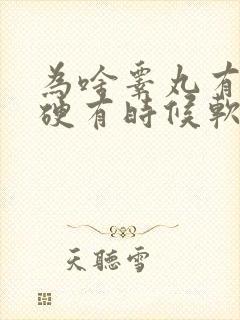 為啥睾丸有
硬有時候軟
天聽雪